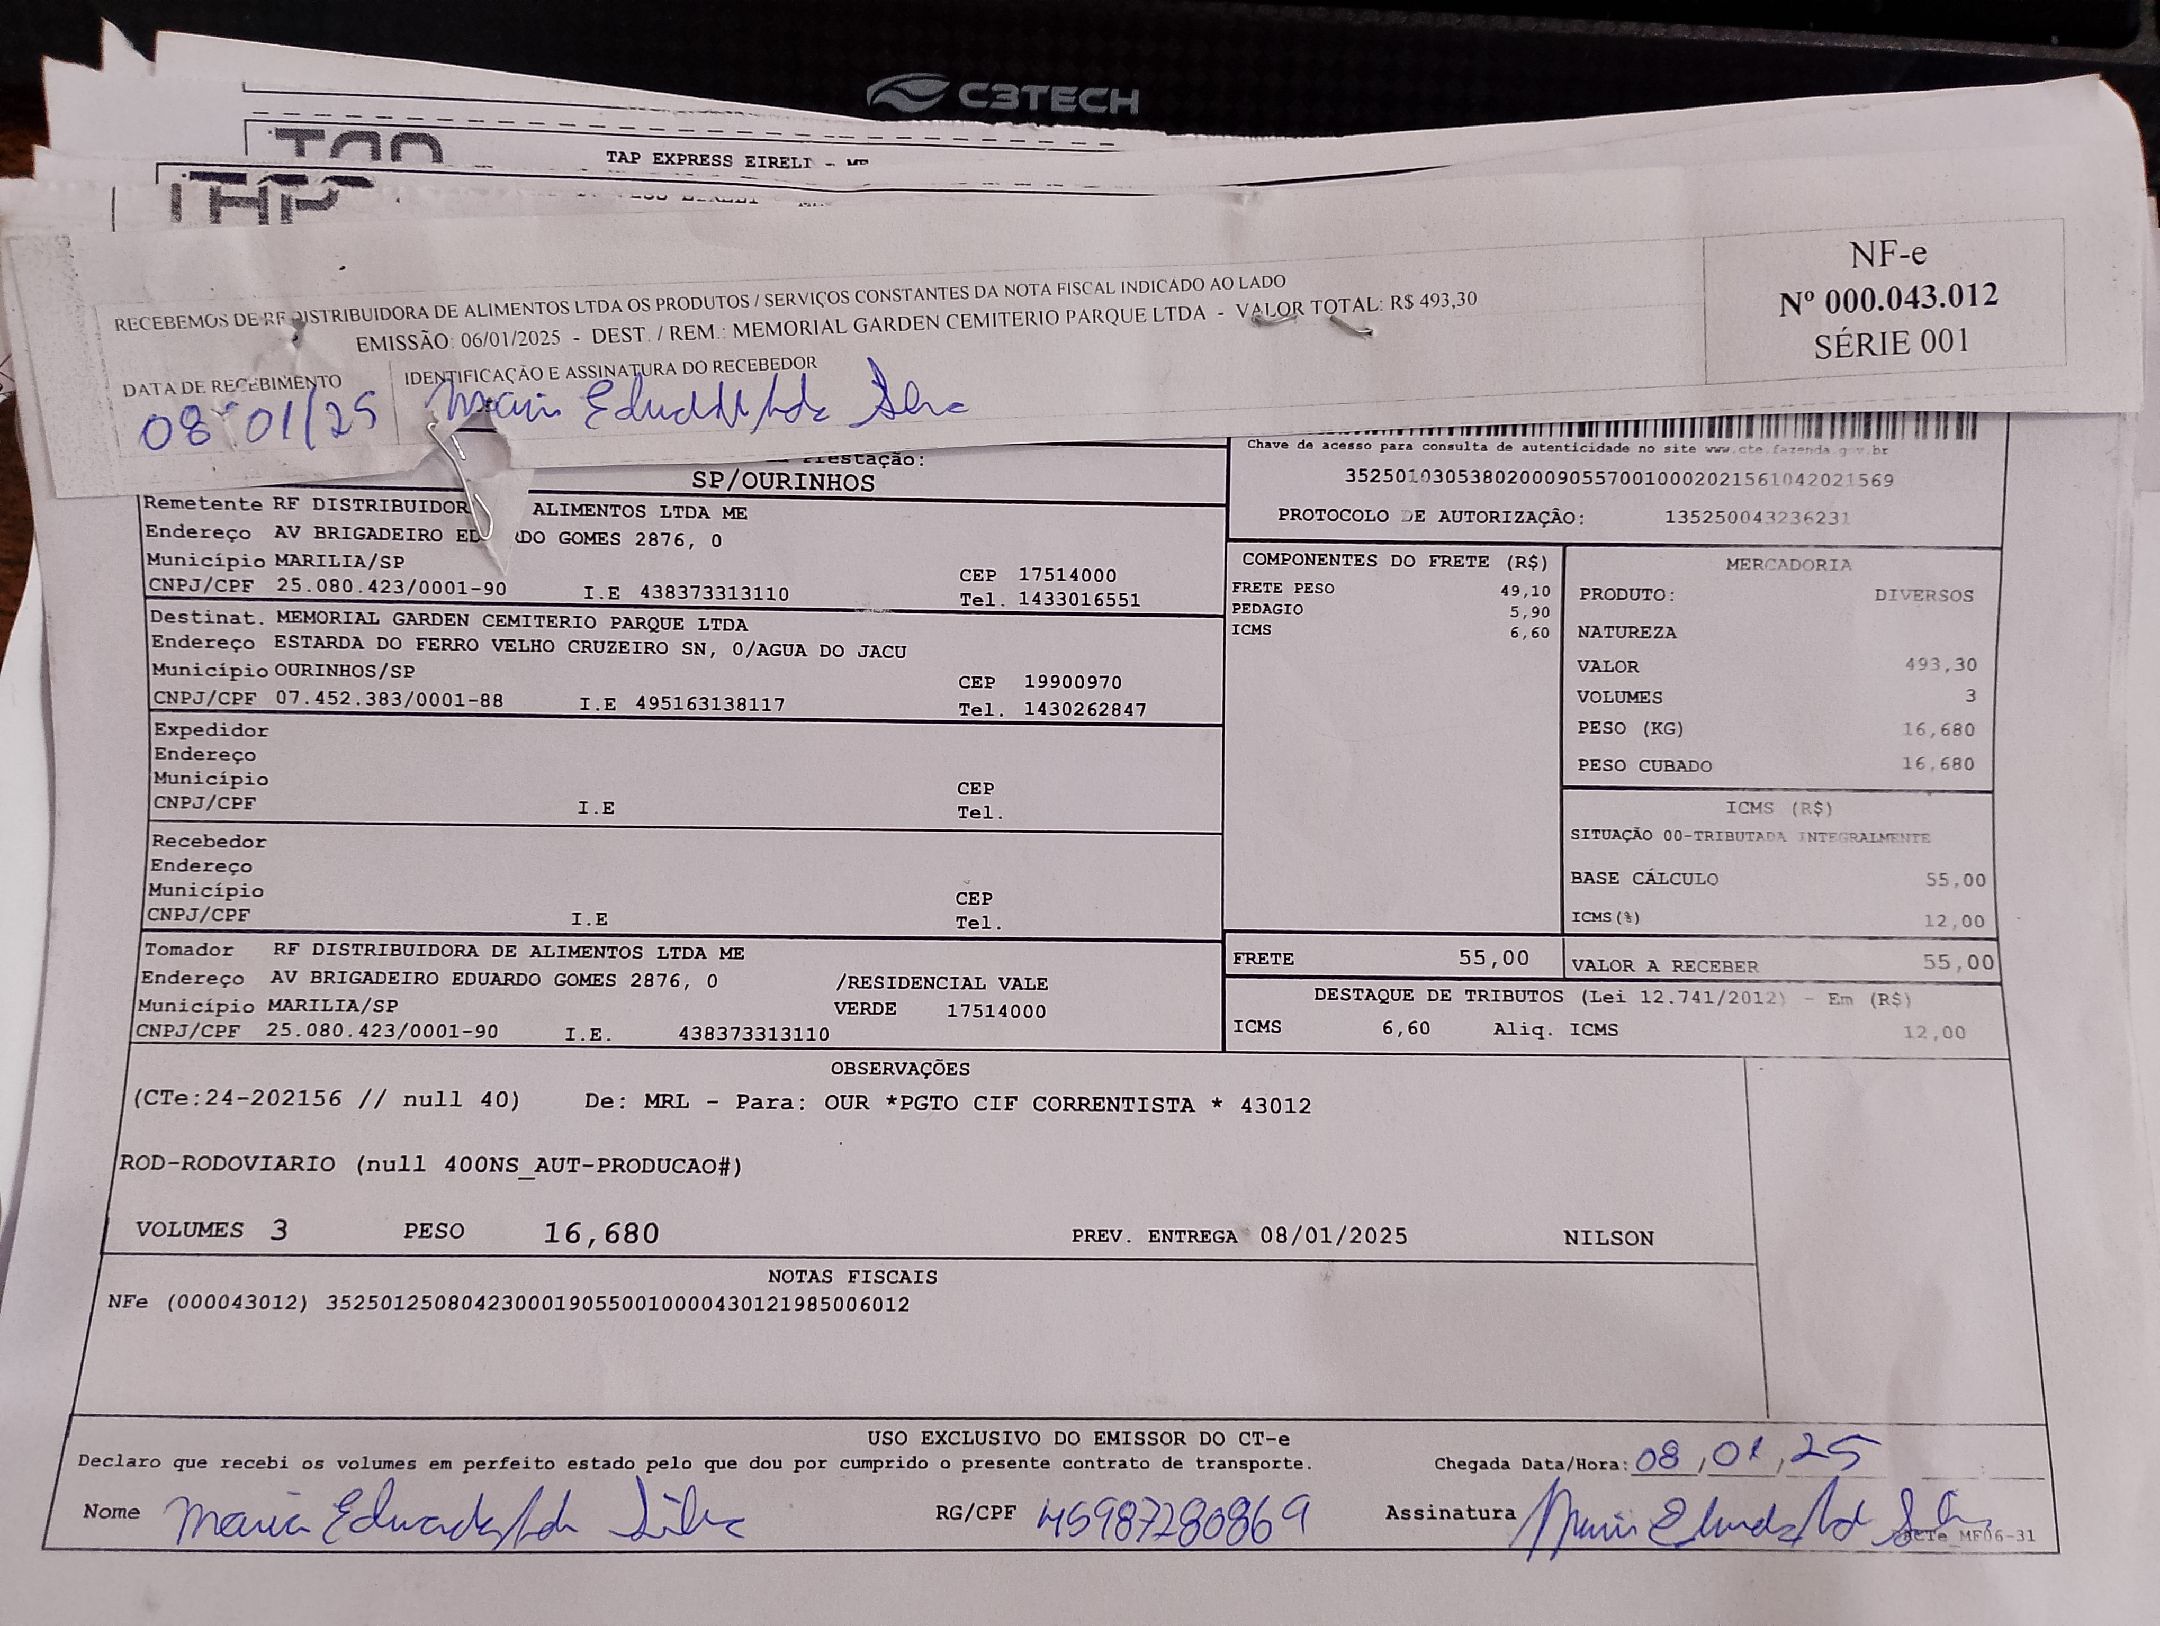 C3TECH
TAP EXPRESS EIRELI - ME
RECEBEMOS DE RF DISTRIBUIDORA DE ALIMENTOS LTDA OS PRODUTOS / SERVIÇOS CONSTANTES DA NOTA FISCAL INDICADO AO LADO
EMISSÃO: 06/01/2025 - DEST. / REM.: MEMORIAL GARDEN CEMITERIO PARQUE LTDA - VALOR TOTAL: R$ 493,30
NF-e
Nº 000.043.012
SÉRIE 001
DATA DE RECEBIMENTO IDENTIFICAÇÃO E ASSINATURA DO RECEBEDOR
08 01/25 Maria
Prestação:
SP/OURINHOS
Chave de acesso para consulta de autenticidade no site www.cte.fazenda.gov.br
35250103053802000905570010002021561042021569
PROTOCOLO DE AUTORIZAÇÃO: 135250043236231
Remetente RF DISTRIBUIDOR ALIMENTOS LTDA ME
Endereço AV BRIGADEIRO EDUARDO GOMES 2876, 0
Município MARILIA/SP CEP 17514000
CNPJ/CPF 25.080.423/0001-90 I.E 438373313110 Tel. 1433016551
Destinat. MEMORIAL GARDEN CEMITERIO PARQUE LTDA
Endereço ESTARDA DO FERRO VELHO CRUZEIRO SN, 0/AGUA DO JACU
Município OURINHOS/SP CEP 19900970
CNPJ/CPF 07.452.383/0001-88 I.E 495163138117 Tel. 1430262847
Expedidor
Endereço
Município CEP
CNPJ/CPF I.E Tel.
Recebedor
Endereço
Município CEP
CNPJ/CPF I.E Tel.
Tomador RF DISTRIBUIDORA DE ALIMENTOS LTDA ME
Endereço AV BRIGADEIRO EDUARDO GOMES 2876, 0 /RESIDENCIAL VALE
Município MARILIA/SP VERDE 17514000
CNPJ/CPF 25.080.423/0001-90 I.E. 438373313110
COMPONENTES DO FRETE (R$)
FRETE PESO 49,10
PEDAGIO 5,90
ICMS 6,60
MERCADORIA
PRODUTO: DIVERSOS
NATUREZA
VALOR 493,30
VOLUMES 3
PESO (KG) 16,680
PESO CUBADO 16,680
ICMS (R$)
SITUAÇÃO 00-TRIBUTADA INTEGRALMENTE
BASE CÁLCULO 55,00
ICMS(%) 12,00
FRETE 55,00 VALOR A RECEBER 55,00
DESTAQUE DE TRIBUTOS (Lei 12.741/2012) - Em (R$)
ICMS 6,60 Aliq. ICMS 12,00
OBSERVAÇÕES
(CTe:24-202156 // null 40) De: MRL - Para: OUR *PGTO CIF CORRENTISTA * 43012
ROD-RODOVIARIO (null 400NS_AUT-PRODUCAO#)
VOLUMES 3 PESO 16,680 PREV. ENTREGA 08/01/2025 NILSON
NOTAS FISCAIS
NFe (000043012) 35250125080423000190550010000430121985006012
USO EXCLUSIVO DO EMISSOR DO CT-e
Declaro que recebi os volumes em perfeito estado pelo que dou por cumprido o presente contrato de transporte. Chegada Data/Hora: 08,01,25
Nome Maria Eduarda da Silva RG/CPF 45987280869 Assinatura Maria Eduarda
DACTe_MF06-31